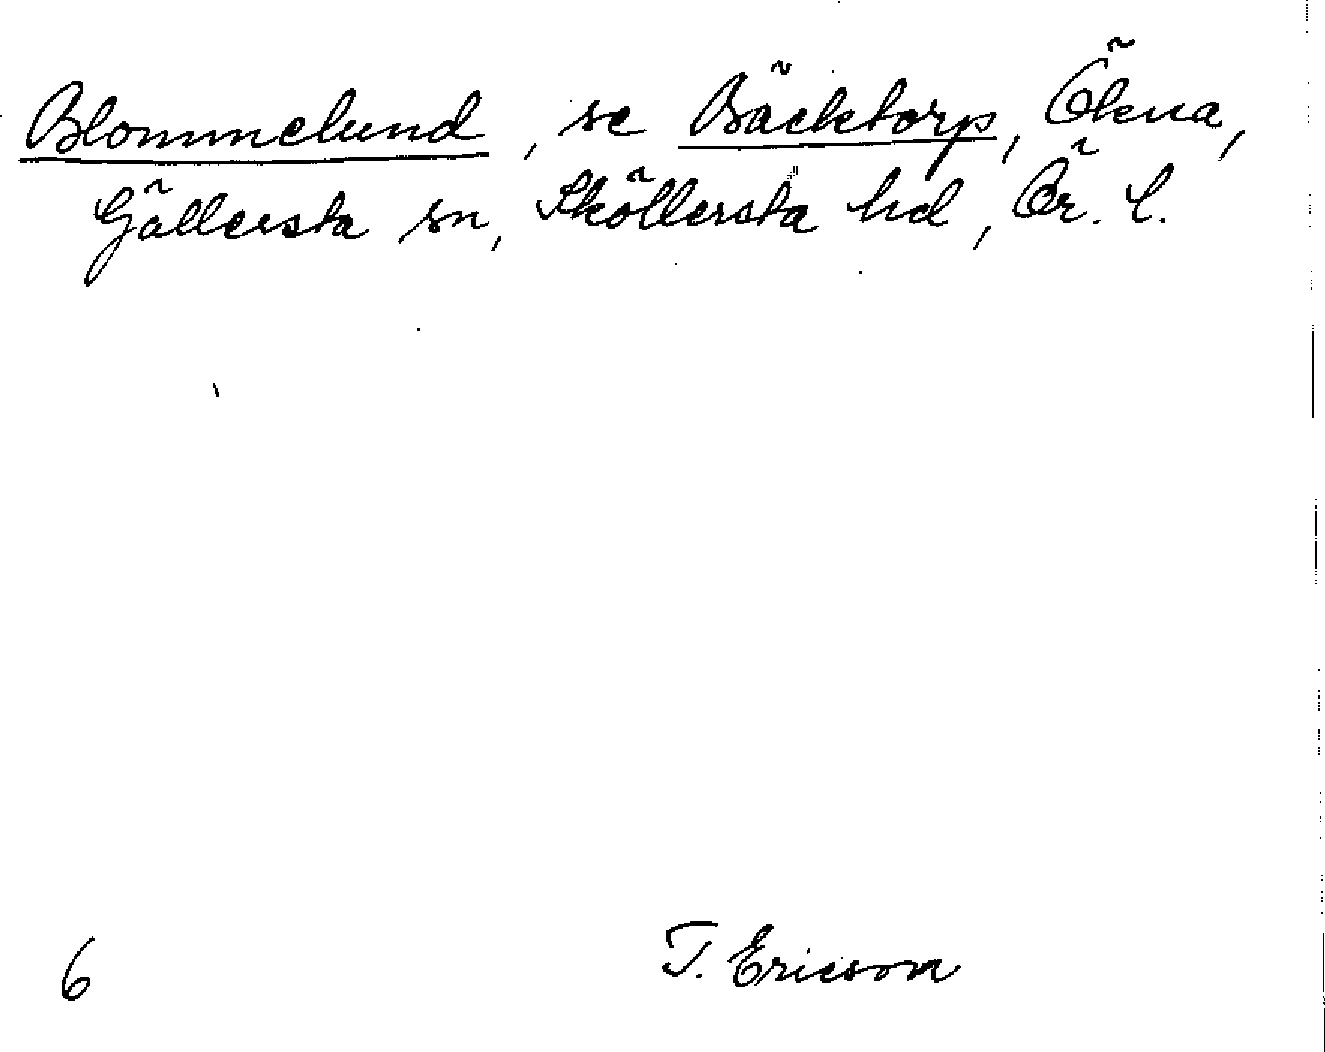 Blommelund, se Bäcktorp, Ökna,
Gällersta sn, Sköllersta hd, Ör. l.
6 T. Ericson